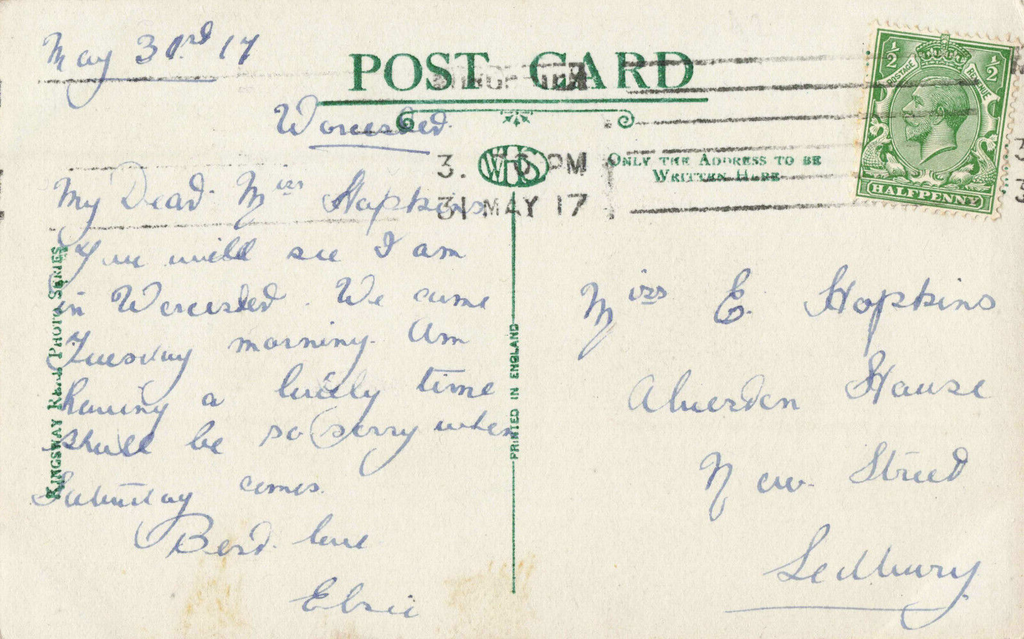 May 31st 17
POST CARD
Worcester.
3. PM
31 MAY 17
WHS
ONLY THE ADDRESS TO BE
WRITTEN HERE
½ ½
POSTAGE REVENUE
HALFPENNY
My Dear Miss Hopkins
You will see I am
in Worcester. We came
Tuesday morning. Am
having a lively time
shall be so sorry when
Saturday comes.
Best love
Elsie
KINGSWAY REAL PHOTO SERIES
PRINTED IN ENGLAND
Miss E. Hopkins
House
New Street
Ledbury